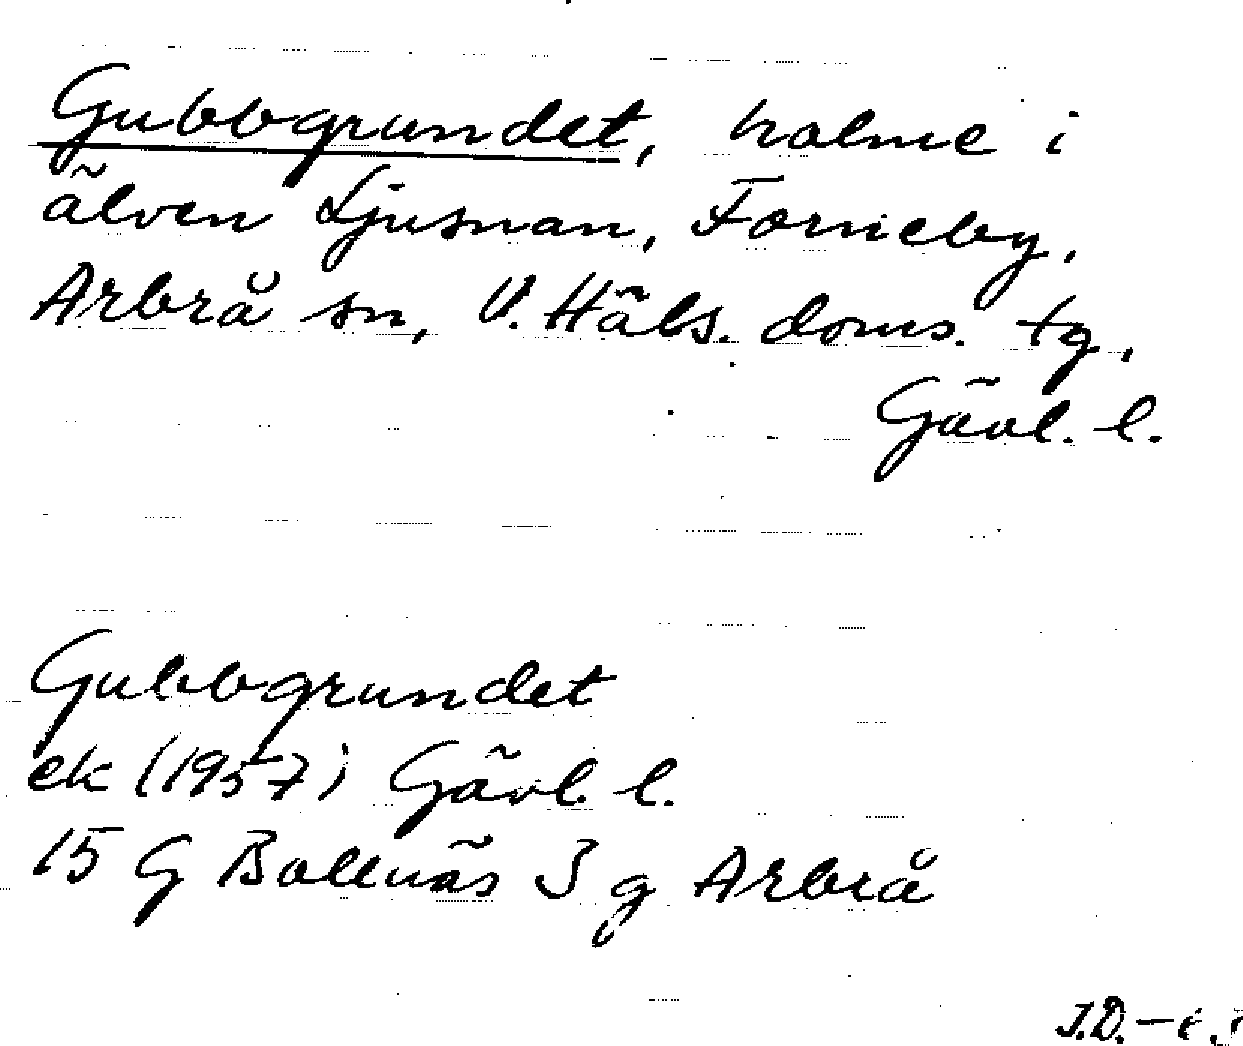 Gubbgrundet, holme i
älven Ljusnan, Forneby,
Arbrå sn, V. Häls. doms. tg,
Gävl. l.
Gubbgrundet
ek (1957) Gävl. l.
15 G Bollnäs 3 g Arbrå
J.D.–